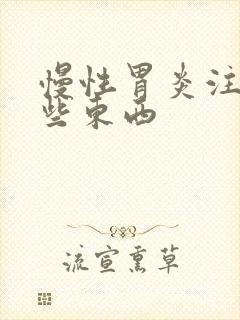 慢性胃炎注
些东西
流宣熏草